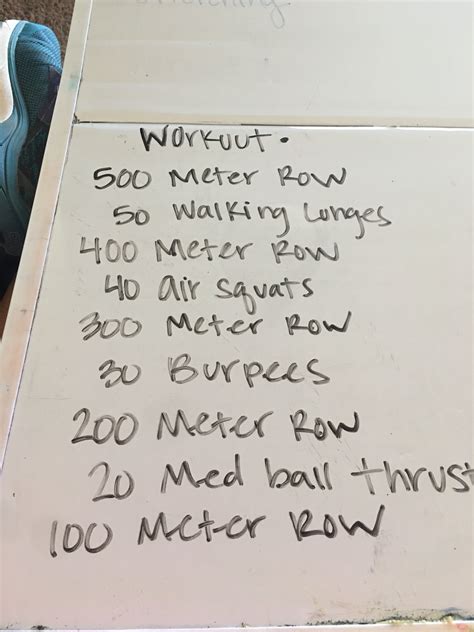 Workout.
500 Meter Row
50 Walking Lunges
400 Meter Row
40 air squats
300 Meter Row
30 Burpees
200 Meter Row
20 Med ball thrust
100 Meter Row